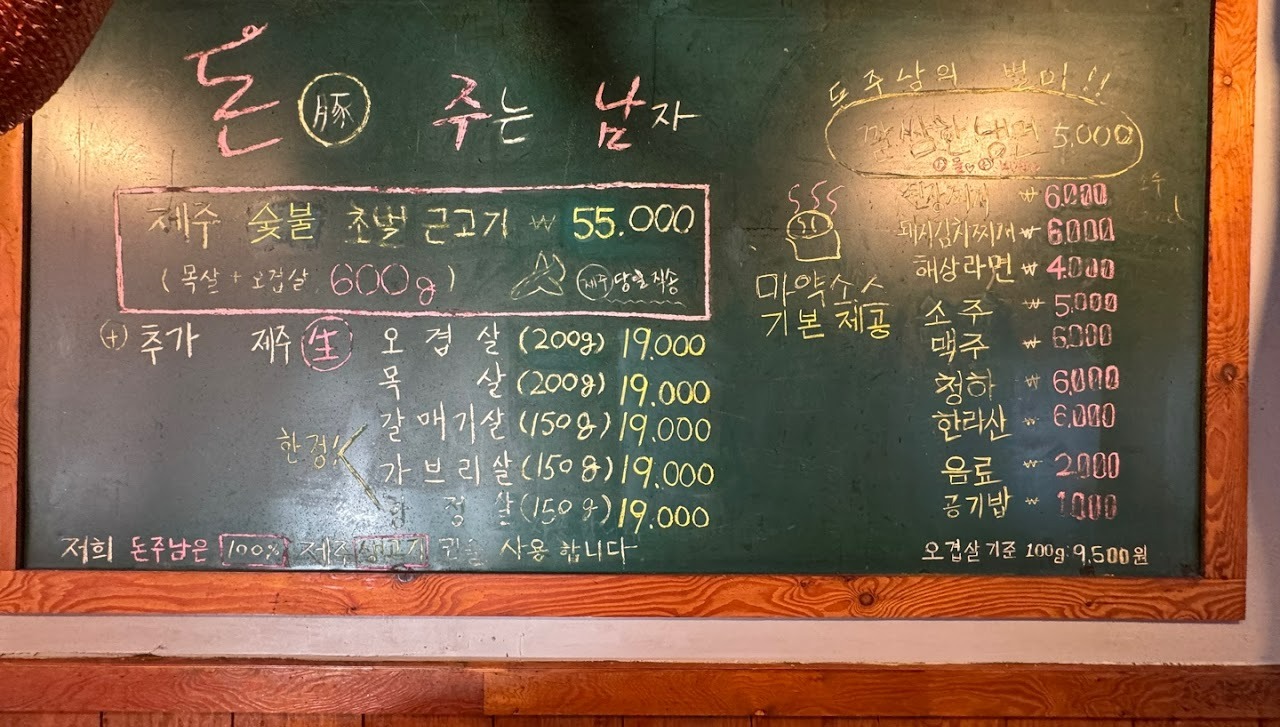 돈 豚 주는 남자
제주 숯불 초벌 근고기 ₩ 55.000
(목살 + 오겹살 600g) 제주 당일 직송
(+) 추가 제주 生 오겹살 (200g) 19.000
목살 (200g) 19.000
갈매기살 (150g) 19.000
한정!! 가브리살 (150g) 19.000
항정살 (150g) 19.000
저희 돈주남은 100% 제주 생고기 만을 사용합니다
돈주남의 별미!!
깔쌈한냉면 5,000
마약소스
기본 제공
된장찌개 ₩ 6.000
돼지김치찌개 ₩ 6.000
해상라면 ₩ 4.000
소주 ₩ 5.000
맥주 ₩ 6.000
청하 ₩ 6.000
한라산 ₩ 6.000
음료 ₩ 2.000
공기밥 ₩ 1.000
오겹살 기준 100g:9,500원